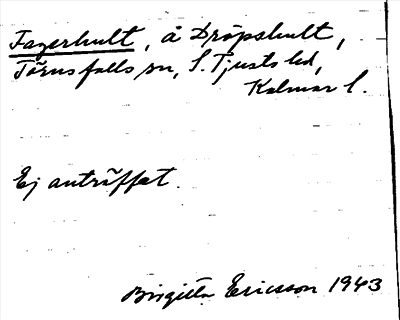 Fagerhult, å Dröpshult,
Törnsfalls sn, S. Tjusts hd,
Kalmar l.
Ej anträffat.
Birgitta Ericsson 1943